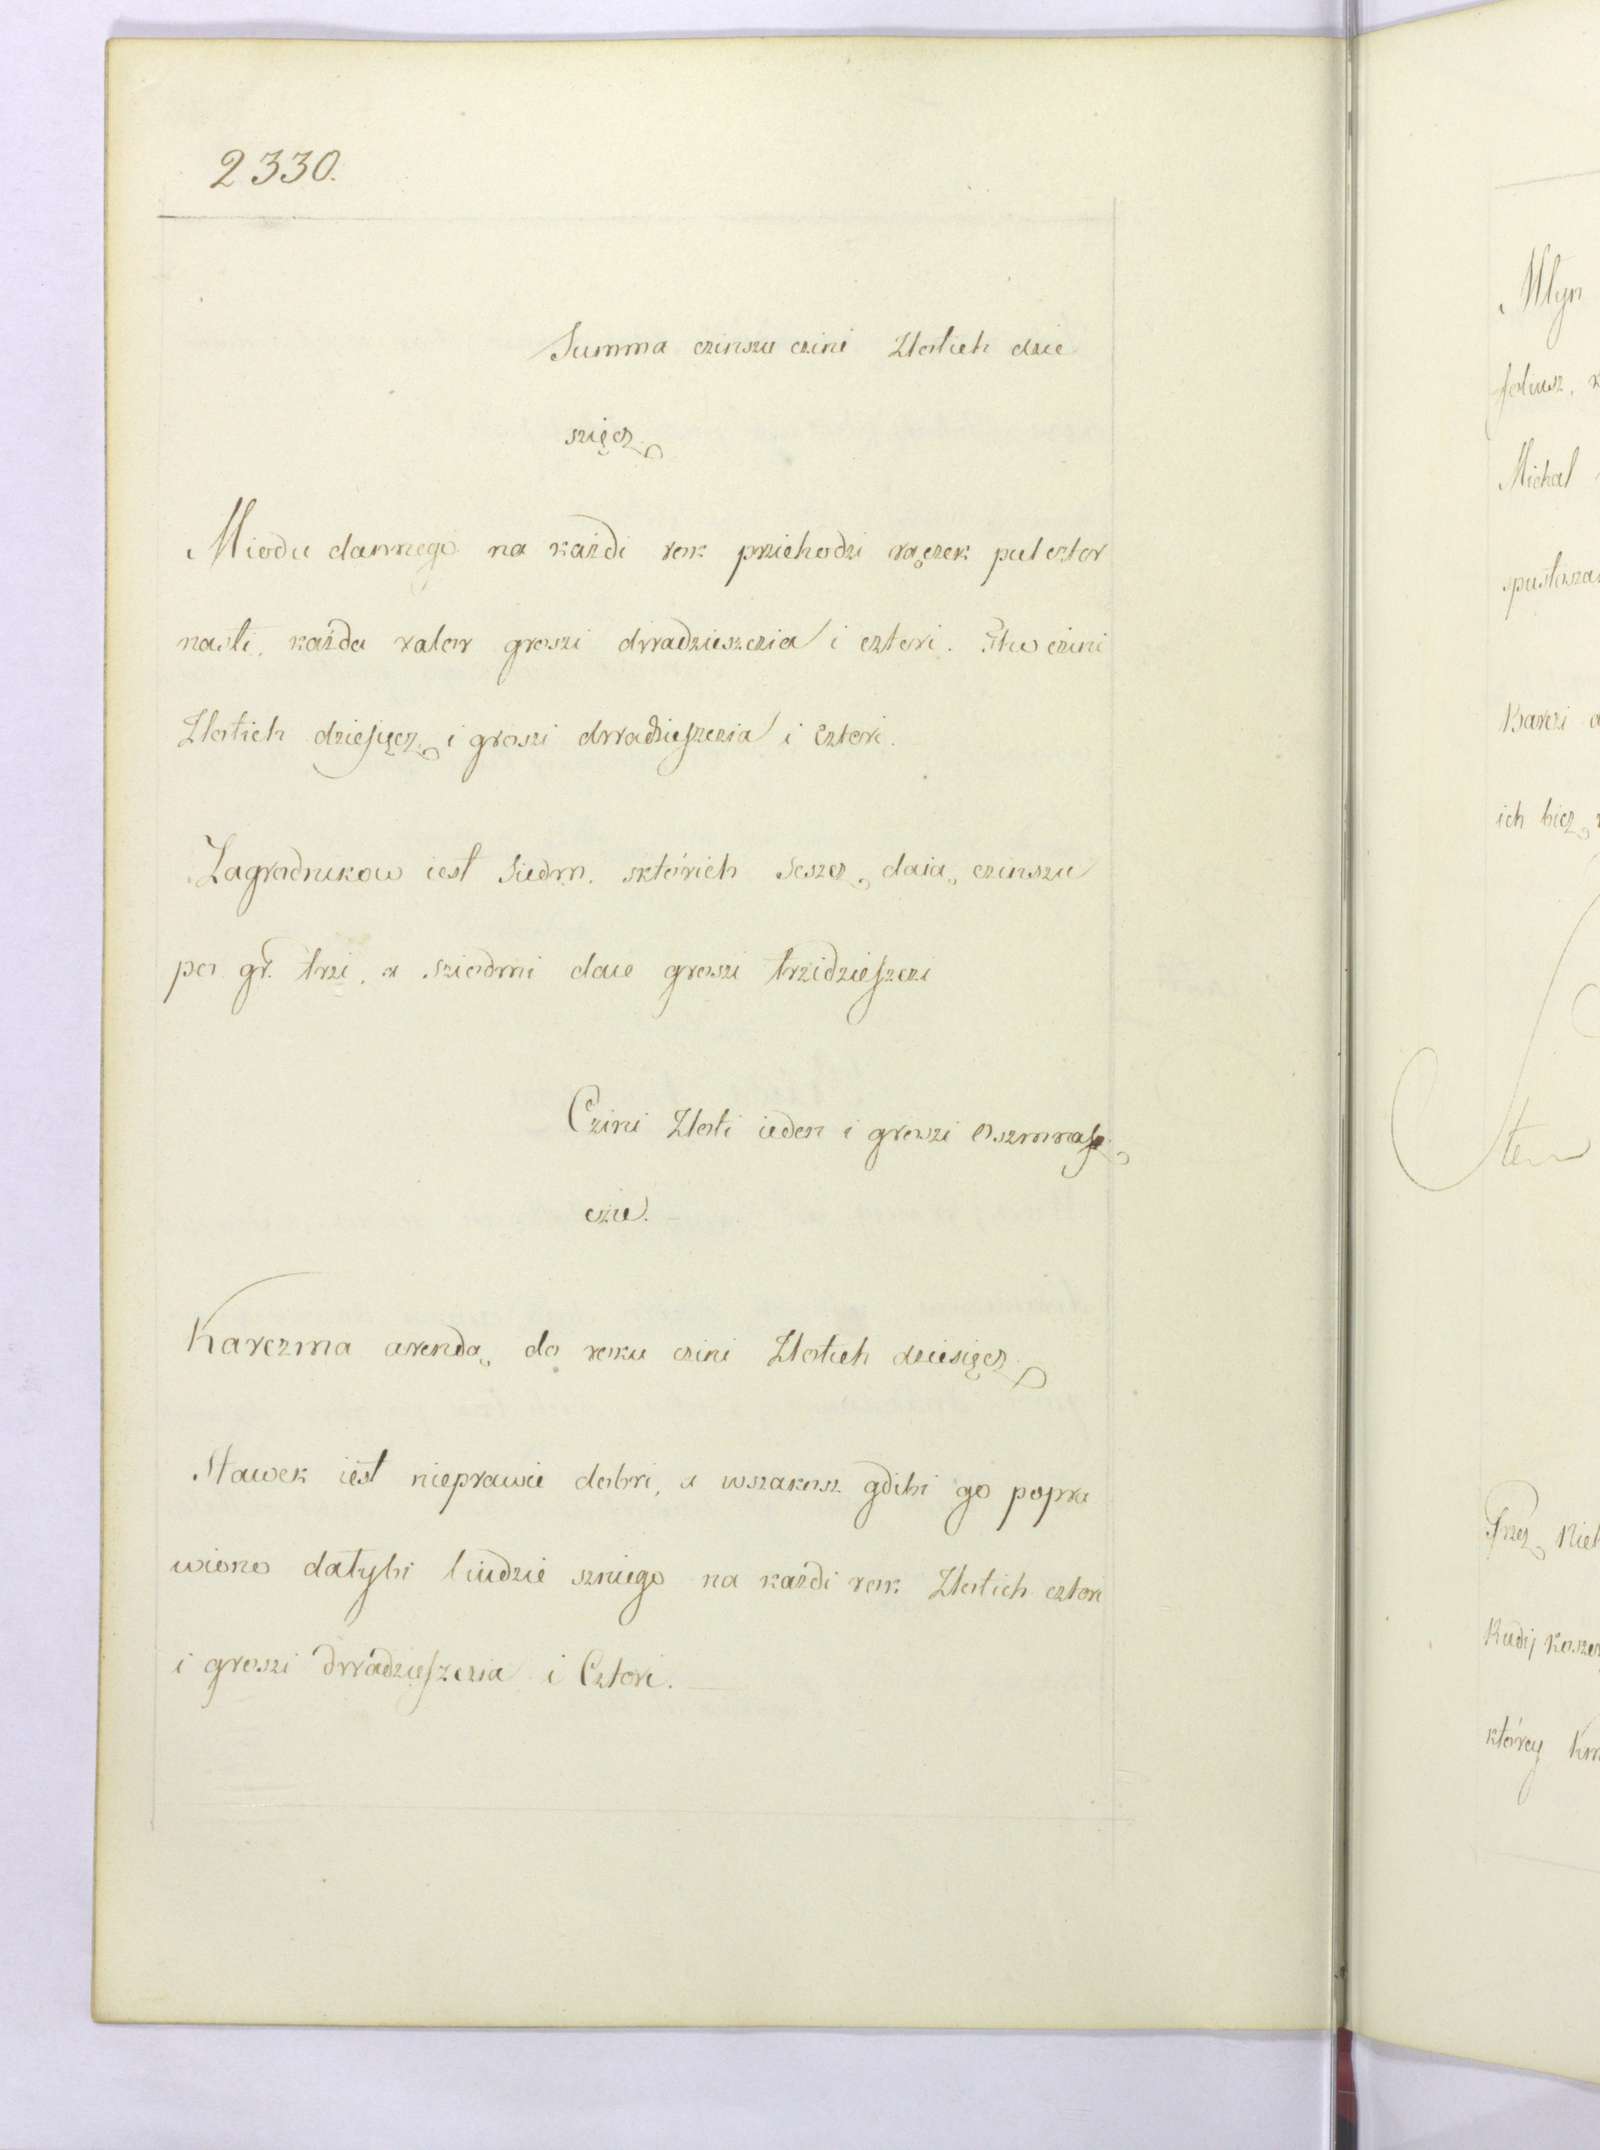 2330.
Summa czinszu czini Złotich dzie
szięcz
Miodu dannego na każdi rok przichodzi rączek pul cztor
nasti, każda valor groszi dwadzieszczia i cztori. Itu czini
Złotich dziesięcz i groszi dwadzieszczia i Cztori.
Zagrodnikow iest Siedm, sktórich Seszcz daią czinszu
po gr. trzi, a sziodmi daie groszi trzidzieszczi
Czini Złoti ieden i groszi Oszmnasz
czie.
Karczma arendą do roku czini Złotich dziesięcz
Stawek iest nieprawie dobri, a wszakosz gdibi go popra
wiono dałybi liudzie szniego na każdi rok Złotich cztori
i groszi dwadzieszczia i Cztori.
Młyn
Michal
Barczi
ich bicz
Rudij
którey